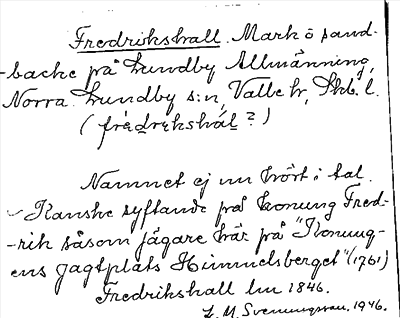 Fredrikshall. Mark o sand-
-backe på Lundby Allmänning,
Norra Lundby s:n, Valle hr, Skb. l.
(frédrekshál ?)
Namnet ej nu hört i tal.
Kanske syftande på konung Fred-
-rik såsom jägare här på "Konung-
ens Jagtplats Himmelsberget" (1761)
Fredrikshall Lm 1846.
L. M. Svenungsson. 1946.